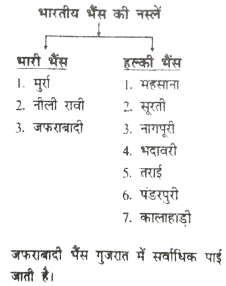 भारतीय भैंस की नस्लें
भारी भैंस
1. मुर्रा
2. नीली रावी
3. जफराबादी
हल्की भैंस
1. महसाना
2. सूरती
3. नागपूरी
4. भदावरी
5. तराई
6. पंडरपुरी
7. कालाहाड़ी
जफराबादी भैंस गुजरात में सर्वाधिक पाई
जाती है।